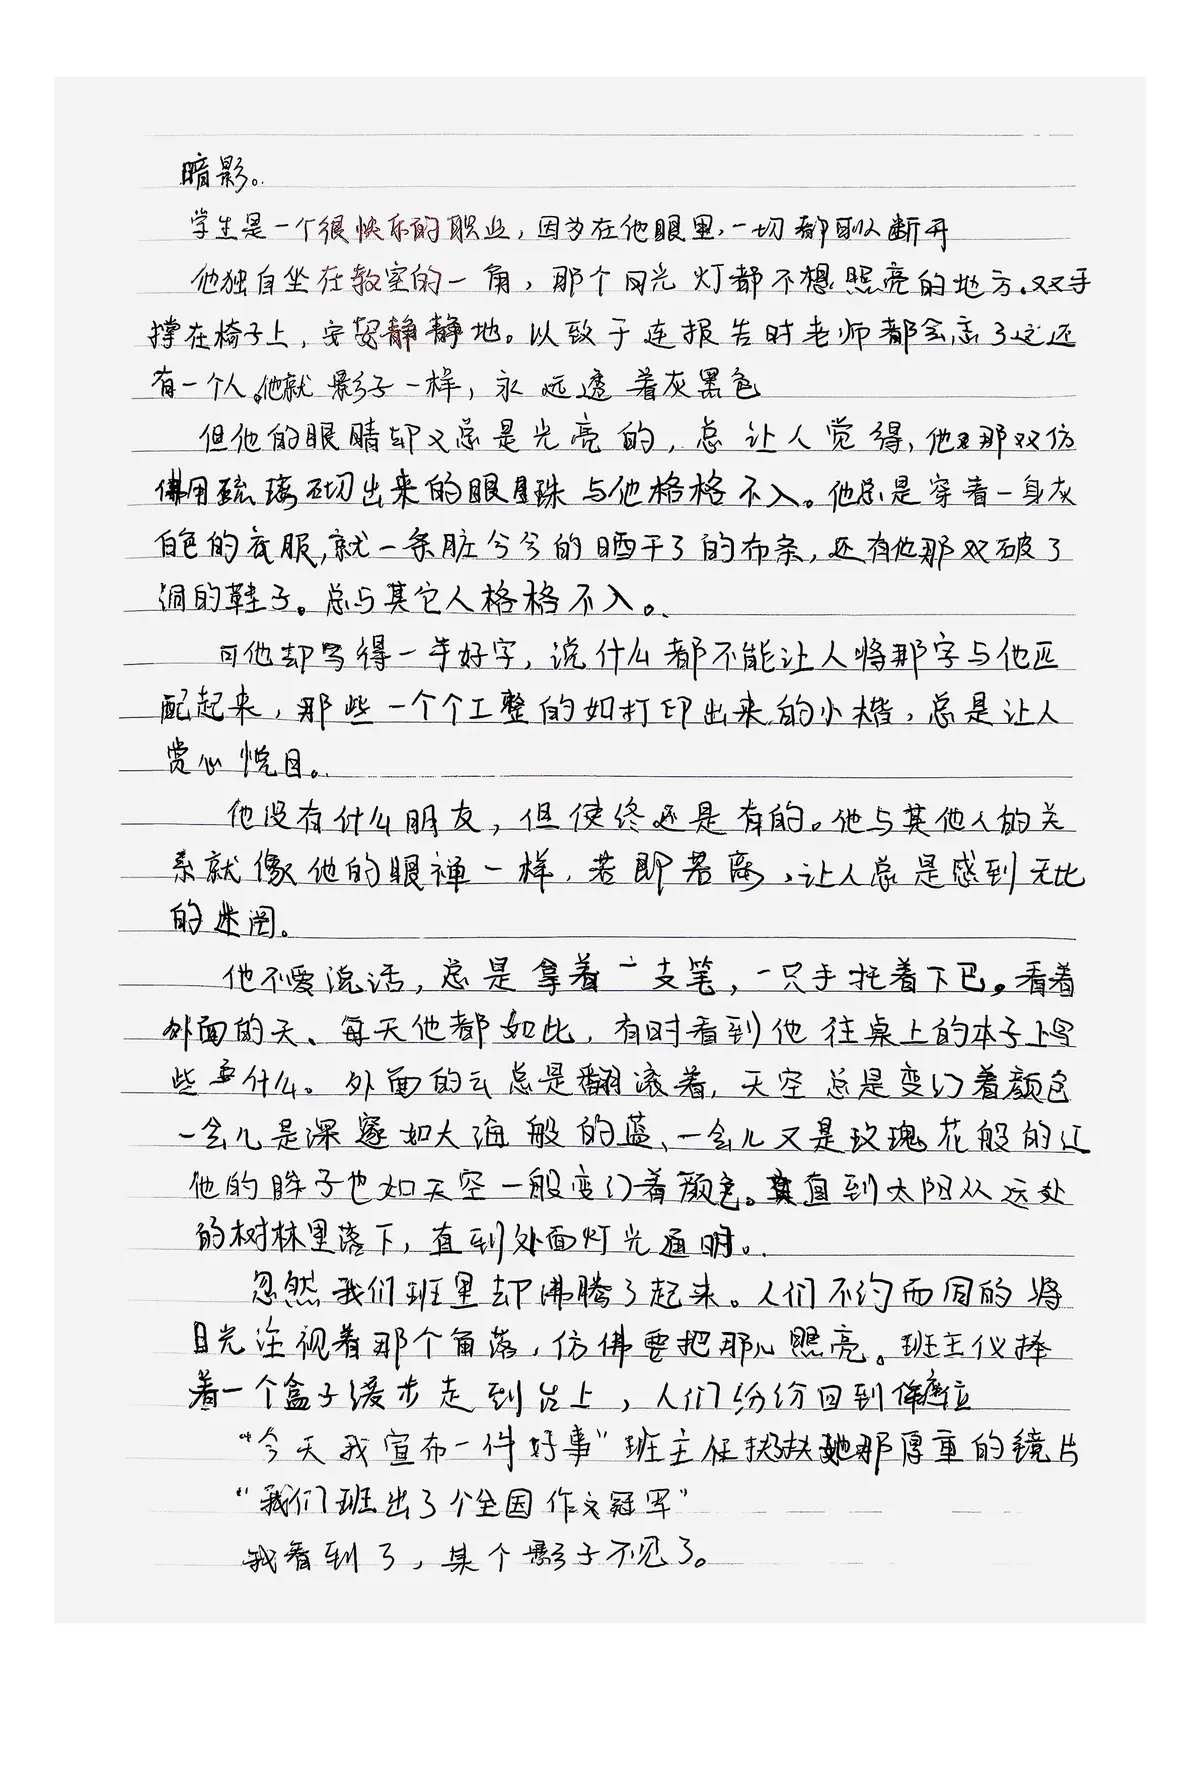 暗影。
学生是一个很快乐的职业，因为在他眼里，一切都可以断开
他独自坐在教室的一角，那个月光灯都不想照亮的地方。双手
撑在椅子上，安安静静地。以致于连报告时老师都会忘了这还
有一个人。他就影子一样，永远透着灰黑色
但他的眼睛却又总是光亮的，总让人觉得，他那双仿
佛用琉璃切出来的眼珠与他格格不入。他总是穿着一身灰
白色的衣服，就一条脏兮兮的晒干了的布条，还有他那双破了
洞的鞋子。总与其它人格格不入。
可他却写得一手好字，说什么都不能让人将那字与他匹
配起来，那些一个个工整的如打印出来的小楷，总是让人
赏心悦目。
他没有什么朋友，但使终还是有的。他与其他人的关
系就像他的眼神一样，若即若离，让人总是感到无比
的迷罔。
他不爱说话，总是拿着一支笔，一只手托着下巴。看着
外面的天、每天他都如此，有时看到他往桌上的本子上写
些什么。外面的云总是翻滚着，天空总是变幻着颜色
一会儿是深邃如大海般的蓝、一会儿又是玫瑰花般的红
他的眸子也如天空一般变幻着颜色。直到太阳从远处
的树林里落下，直到外面灯光通明。
忽然我们班里却沸腾了起来。人们不约而同的将
目光注视着那个角落，仿佛要把那儿照亮。班主仪捧
着一个盒子缓步走到台上，人们纷纷回到座位
“今天我宣布一件好事”班主任扶扶她那厚重的镜片
“我们班出了个全国作文冠军”
我看到了，某个影子不见了。